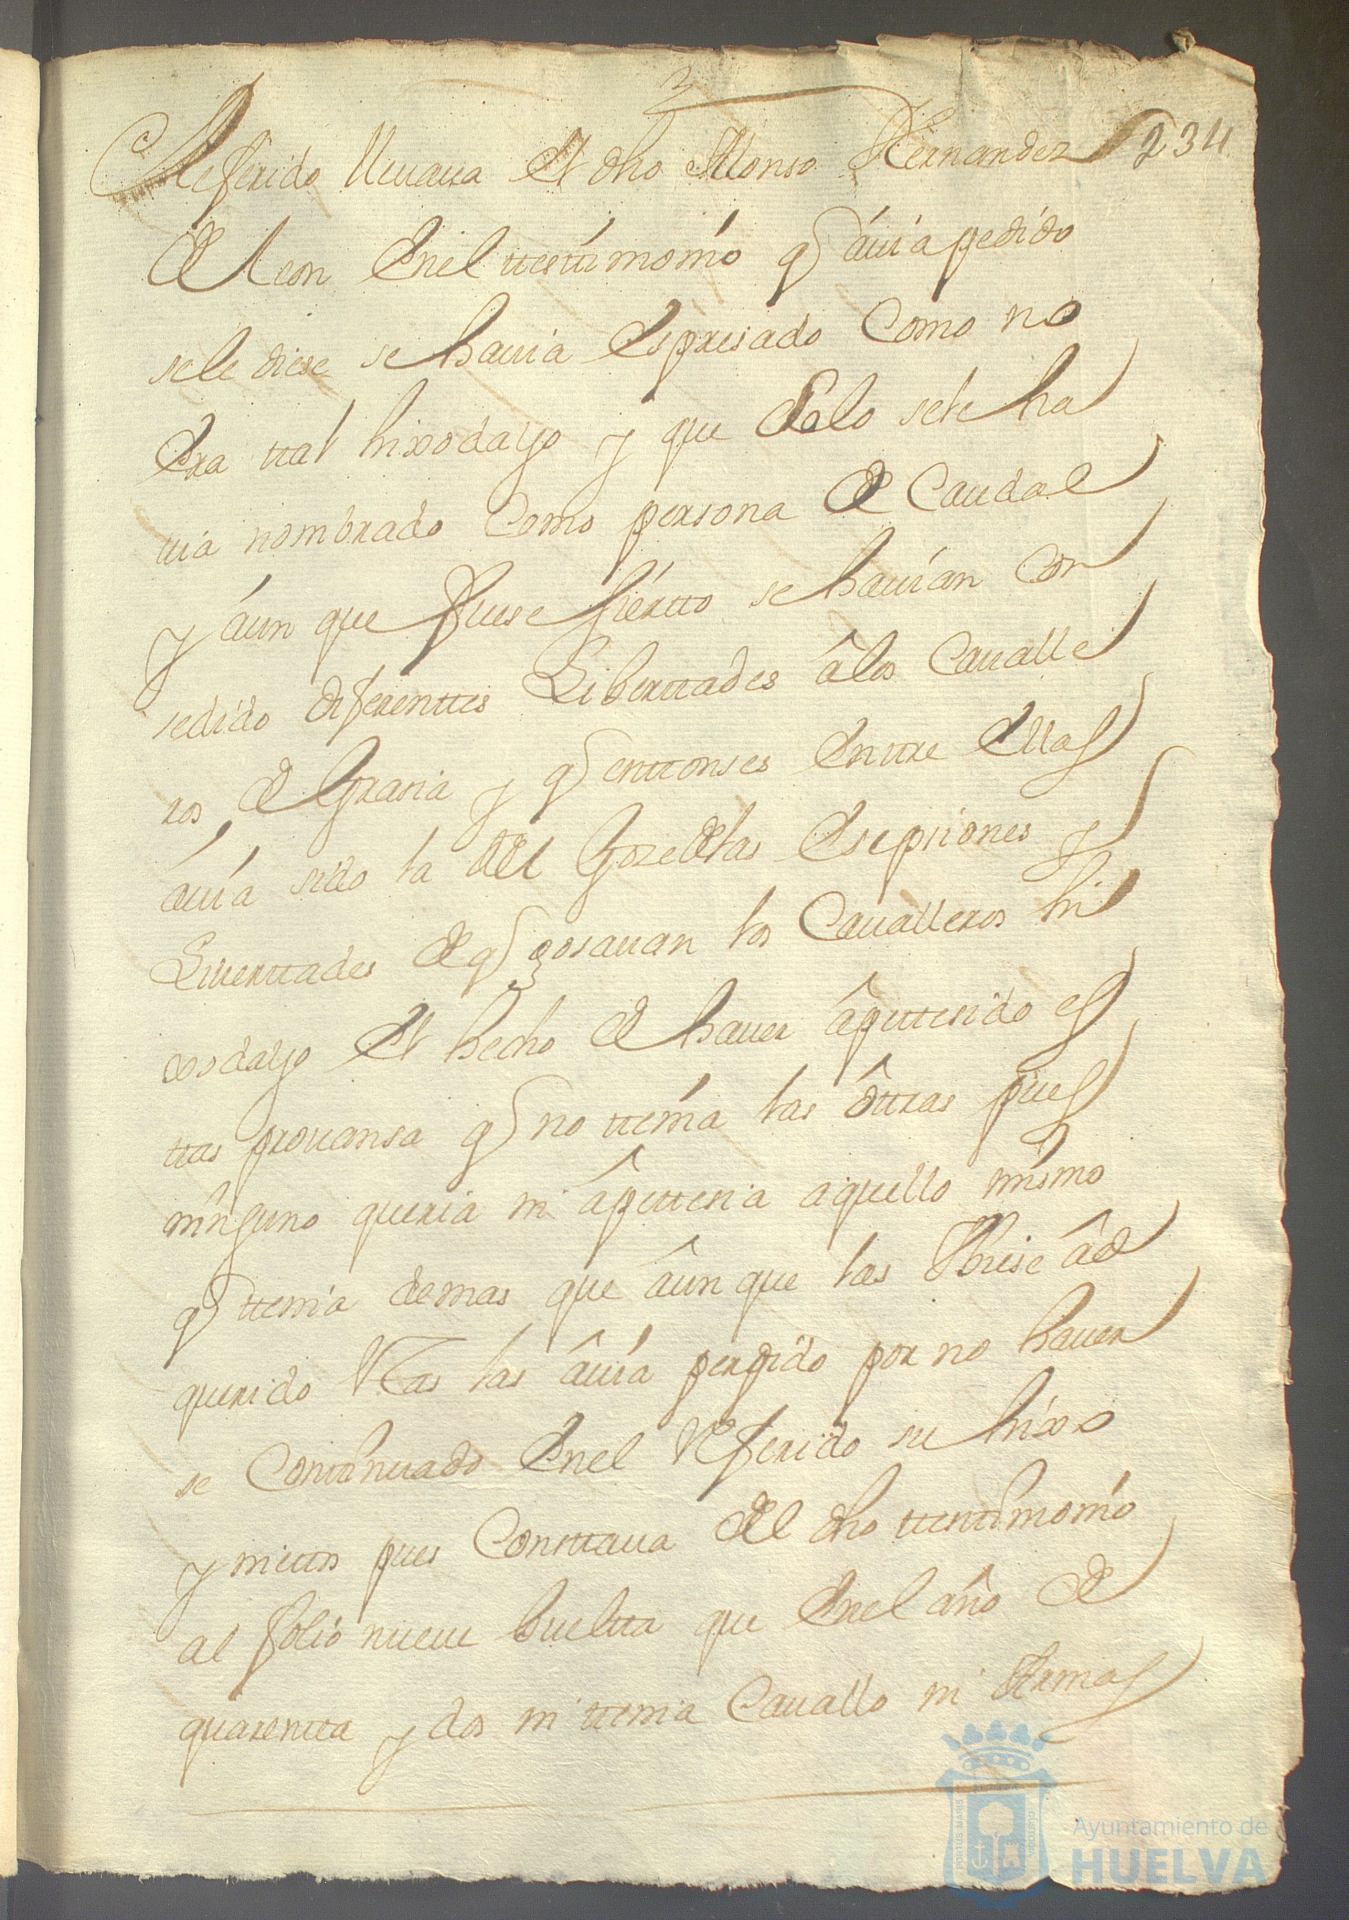 234
Referido llevava el dho Alonso Hernandez
de leon enel testimonio q avia pedido
sele diese se havia espresado como no
era tal hixodalgo y que solo sele ha
via nombrado como persona de Caudal
y aun que fuese sierto se havian con
sedido diferenttes Liberttades â los Cavalle
ros de Grasia y q enttonses entre ellas
avia sido la del Goze de las esepsiones y
Liverttades de q gosavan los Cavalleros hi
xosdalgo el hecho de haver âpettesido es
tas provansa q no ttenia las ôttras pues
ninguno queria ni âpettesia aquello mismo
q ttenia demas que âun que las hubiese âd
querido las avia perdido por no haver
se Continuado enel Referido su hixo
y niettos pues Consttava del dho testtimonio
al folio nueve buelta que enel año de
quarentta y dos ni ttenia Cavallo ni Armas
Ayuntamiento de
HUELVA